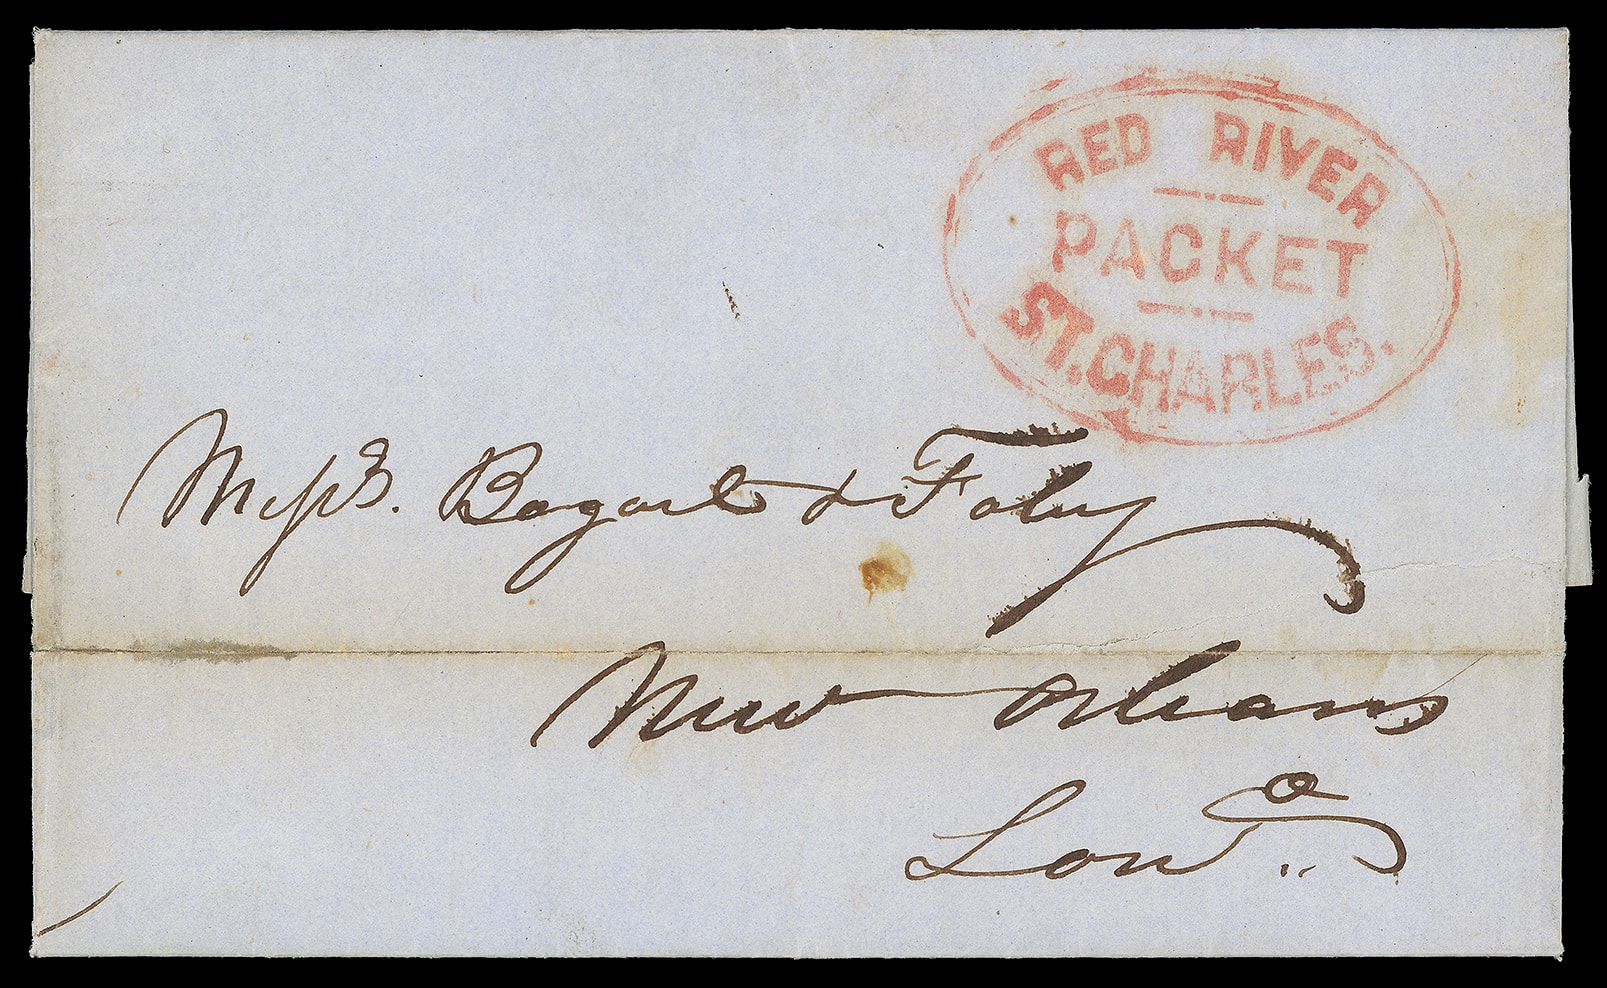 RED RIVER
PACKET
ST. CHARLES.
Messrs. Bogart & Foley
New Orleans
Lou a